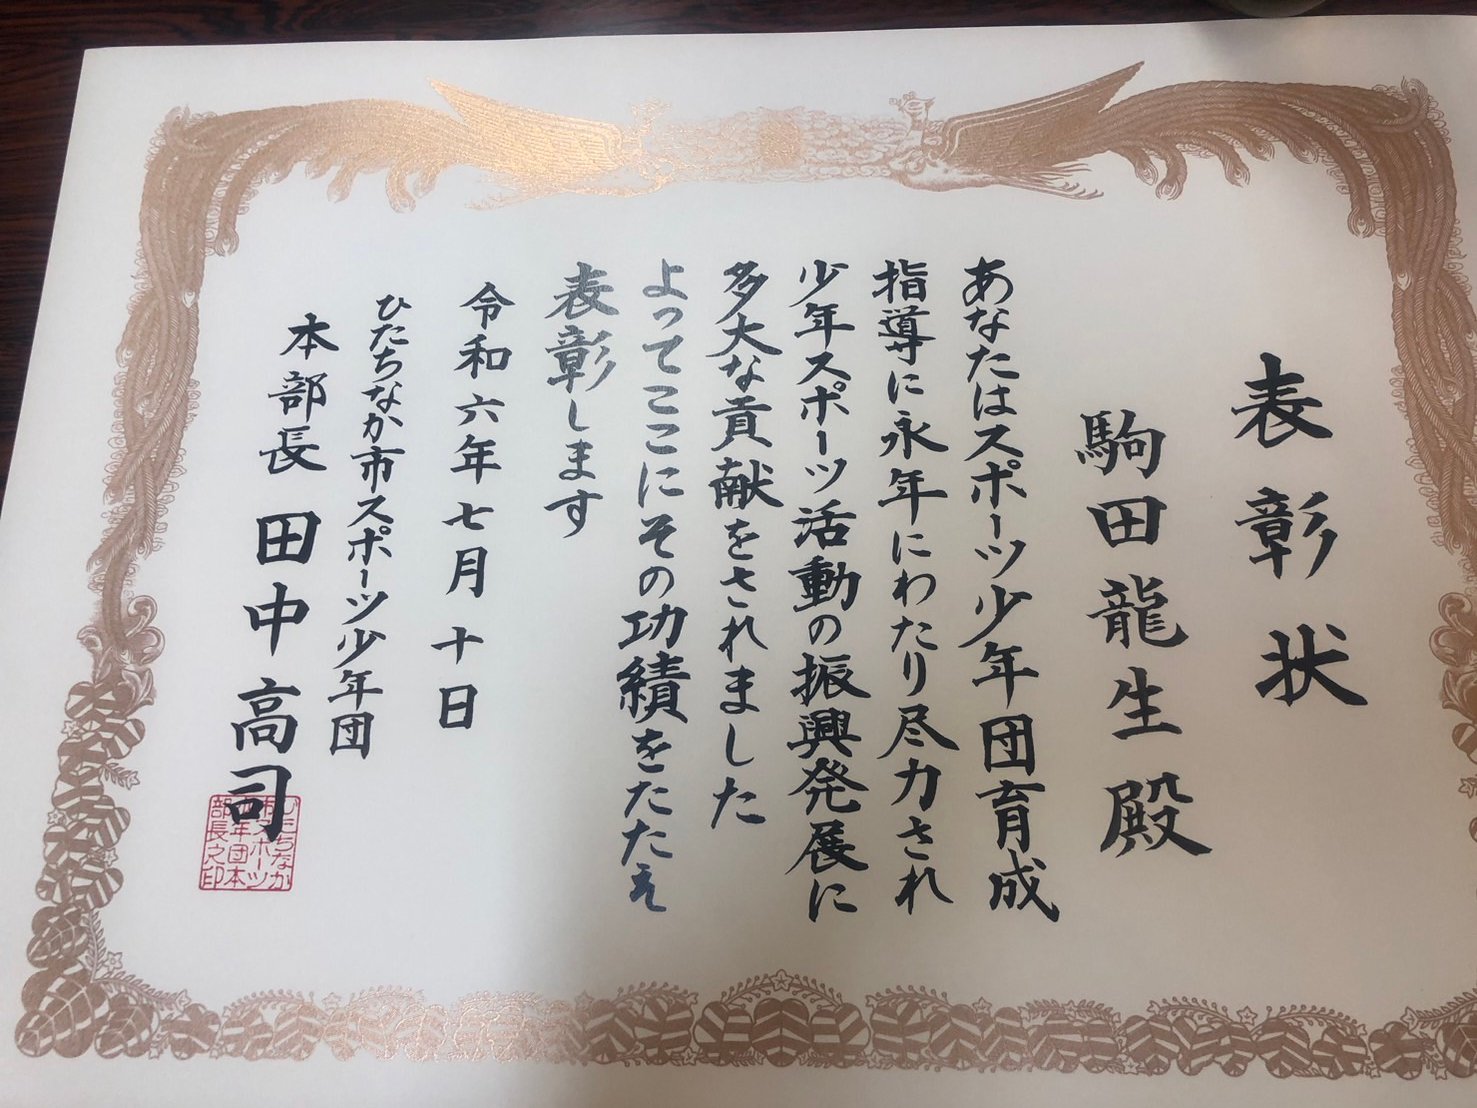 表彰状
駒田龍生殿
あなたはスポーツ少年団育成
指導に永年にわたり尽力され
少年スポーツ活動の振興発展に
多大な貢献をされました
よってここにその功績をたたえ
表彰します
令和六年七月十日
ひたちなか市スポーツ少年団
本部長 田中高司
ひたちなか
市スポーツ
少年団本
部長之印